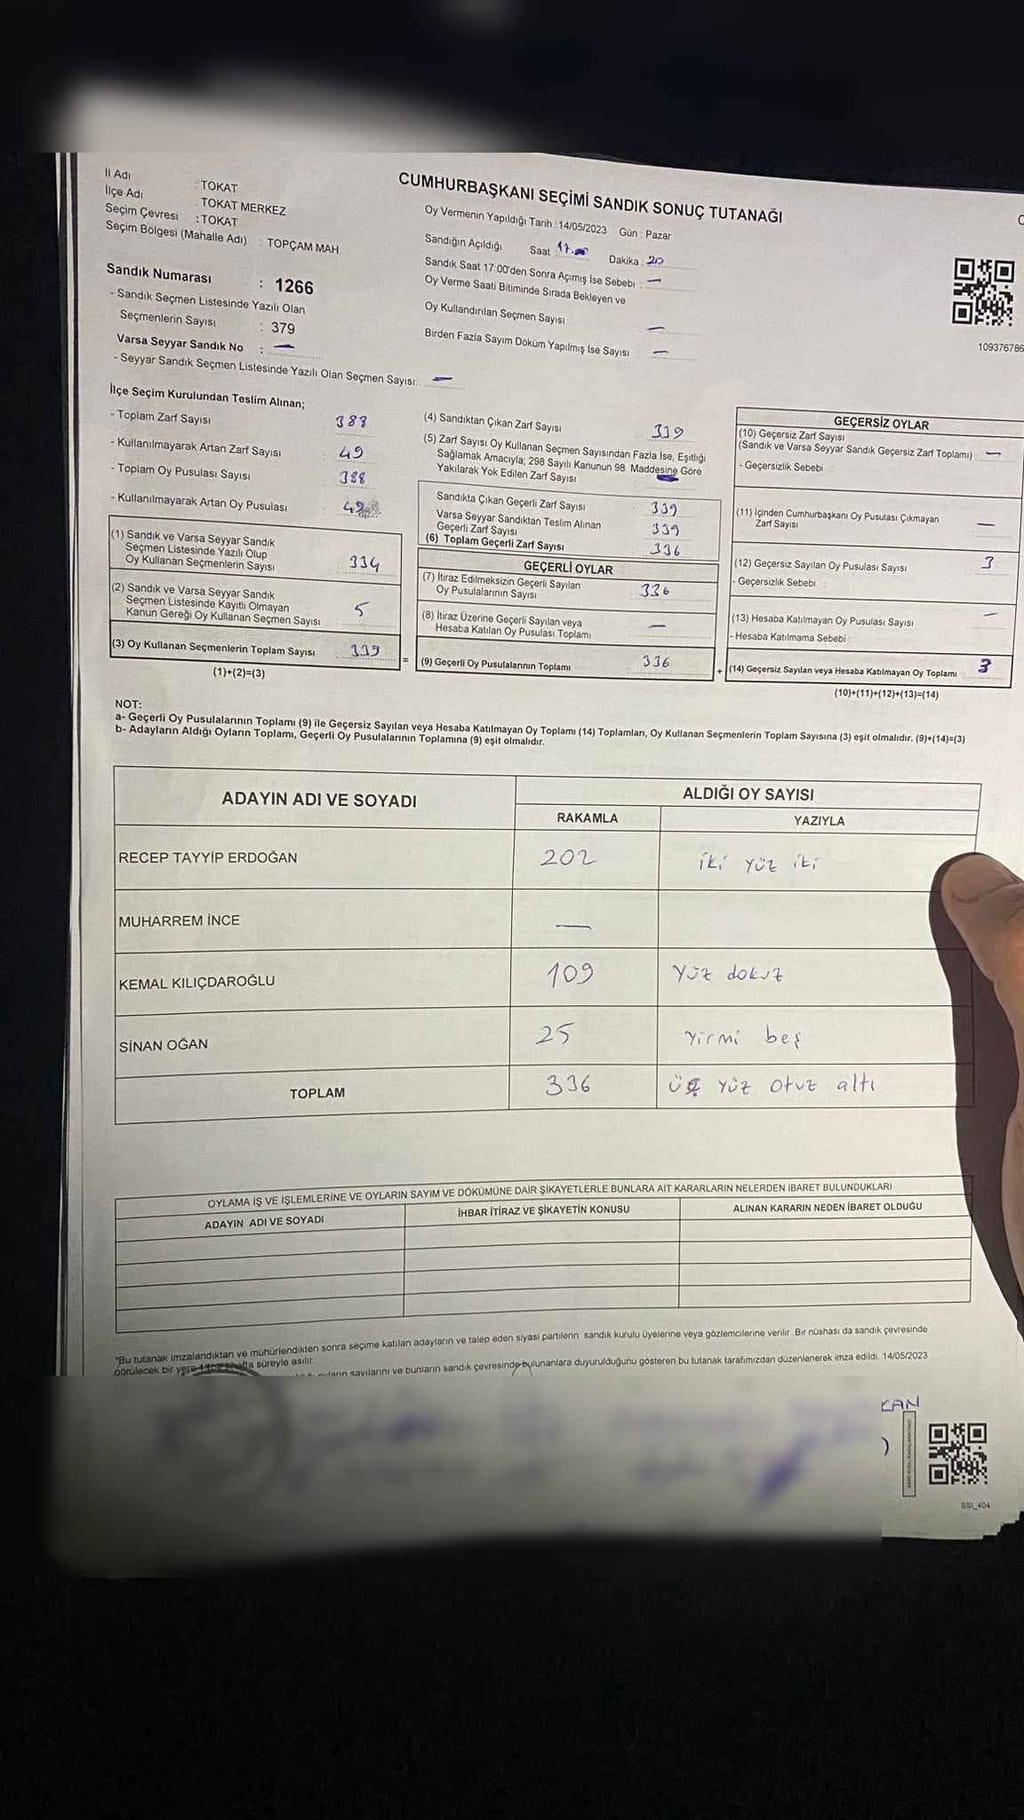 CUMHURBAŞKANI SEÇİMİ SANDIK SONUÇ TUTANAĞI
İl Adı : TOKAT
İlçe Adı : TOKAT MERKEZ
Seçim Çevresi : TOKAT
Seçim Bölgesi (Mahalle Adı) : TOPÇAM MAH
Sandık Numarası : 1266
- Sandık Seçmen Listesinde Yazılı Olan
Seçmenlerin Sayısı : 379
Varsa Seyyar Sandık No : —
- Seyyar Sandık Seçmen Listesinde Yazılı Olan Seçmen Sayısı: —
Oy Vermenin Yapıldığı Tarih : 14/05/2023 Gün : Pazar
Sandığın Açıldığı Saat 17 Dakika 20
Sandık Saat 17:00'den Sonra Açımış İse Sebebi : —
Oy Verme Saati Bitiminde Sırada Bekleyen ve
Oy Kullandırılan Seçmen Sayısı —
Birden Fazla Sayım Döküm Yapılmış İse Sayısı —
109376786
İlçe Seçim Kurulundan Teslim Alınan;
- Toplam Zarf Sayısı : 388
- Kullanılmayarak Artan Zarf Sayısı : 49
- Toplam Oy Pusulası Sayısı : 388
- Kullanılmayarak Artan Oy Pusulası : 49
(1) Sandık ve Varsa Seyyar Sandık
Seçmen Listesinde Yazılı Olup
Oy Kullanan Seçmenlerin Sayısı : 334
(2) Sandık ve Varsa Seyyar Sandık
Seçmen Listesinde Kayıtlı Olmayan
Kanun Gereği Oy Kullanan Seçmen Sayısı : 5
(3) Oy Kullanan Seçmenlerin Toplam Sayısı : 339
(1)+(2)=(3)
(4) Sandıktan Çıkan Zarf Sayısı 339
(5) Zarf Sayısı Oy Kullanan Seçmen Sayısından Fazla İse, Eşitliği
Sağlamak Amacıyla; 298 Sayılı Kanunun 98 Maddesine Göre
Yakılarak Yok Edilen Zarf Sayısı
Sandıkta Çıkan Geçerli Zarf Sayısı 339
Varsa Seyyar Sandıktan Teslim Alınan
Geçerli Zarf Sayısı 339
(6) Toplam Geçerli Zarf Sayısı 336
GEÇERLİ OYLAR
(7) İtiraz Edilmeksizin Geçerli Sayılan
Oy Pusulalarının Sayısı 336
(8) İtiraz Üzerine Geçerli Sayılan veya
Hesaba Katılan Oy Pusulası Toplamı —
= (9) Geçerli Oy Pusulalarının Toplamı 336
GEÇERSİZ OYLAR
(10) Geçersiz Zarf Sayısı
(Sandık ve Varsa Seyyar Sandık Geçersiz Zarf Toplamı) —
- Geçersizlik Sebebi :
(11) İçinden Cumhurbaşkanı Oy Pusulası Çıkmayan
Zarf Sayısı —
(12) Geçersiz Sayılan Oy Pusulası Sayısı 3
- Geçersizlik Sebebi :
(13) Hesaba Katılmayan Oy Pusulası Sayısı —
- Hesaba Katılmama Sebebi :
+ (14) Geçersiz Sayılan veya Hesaba Katılmayan Oy Toplamı 3
(10)+(11)+(12)+(13)=(14)
NOT:
a- Geçerli Oy Pusulalarının Toplamı (9) ile Geçersiz Sayılan veya Hesaba Katılmayan Oy Toplamı (14) Toplamları, Oy Kullanan Seçmenlerin Toplam Sayısına (3) eşit olmalıdır. (9)+(14)=(3)
b- Adayların Aldığı Oyların Toplamı, Geçerli Oy Pusulalarının Toplamına (9) eşit olmalıdır.
ADAYIN ADI VE SOYADI ALDIĞI OY SAYISI
RAKAMLA YAZIYLA
RECEP TAYYİP ERDOĞAN 202 iki yüz iki
MUHARREM İNCE —
KEMAL KILIÇDAROĞLU 109 Yüz dokuz
SİNAN OĞAN 25 Yirmi beş
TOPLAM 336 üç yüz otuz altı
OYLAMA İŞ VE İŞLEMLERİNE VE OYLARIN SAYIM VE DÖKÜMÜNE DAİR ŞİKAYETLERLE BUNLARA AİT KARARLARIN NELERDEN İBARET BULUNDUKLARI
ADAYIN ADI VE SOYADI İHBAR İTİRAZ VE ŞİKAYETİN KONUSU ALINAN KARARIN NEDEN İBARET OLDUĞU
*Bu tutanak imzalandıktan ve mühürlendikten sonra seçime katılan adayların ve talep eden siyasi partilerin sandık kurulu üyelerine veya gözlemcilerine verilir. Bir nüshası da sandık çevresinde
görülecek bir yere 1 hafta süreyle asılır.
sayılarını ve bunların sandık çevresinde bulunanlara duyurulduğunu gösteren bu tutanak tarafımızdan düzenlenerek imza edildi. 14/05/2023
KAN
)
SSI_404